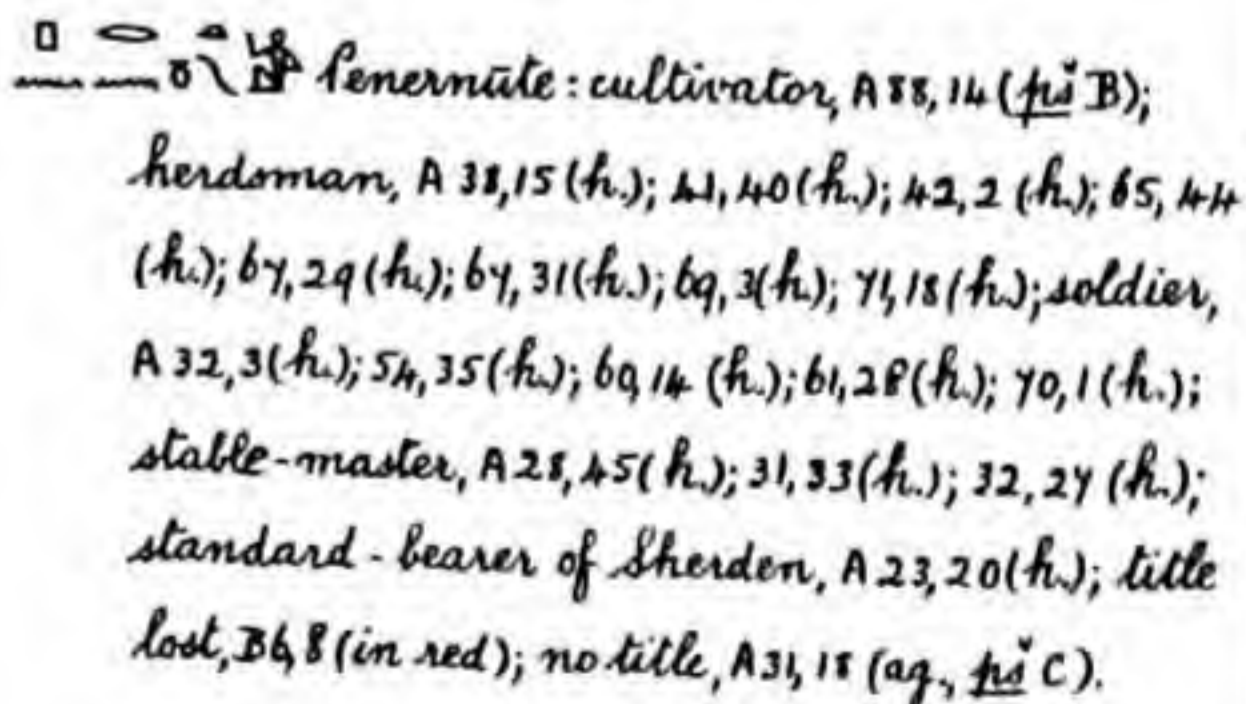 Penernūte: cultivator, A 88,14 (pš B);
herdsman, A 38,15 (h.); 41,40 (h.); 42,2 (h.); 65,44
(h.); 67,29 (h.); 67,31 (h.); 69,3 (h.); 71,18 (h.); soldier,
A 32,3 (h.); 54,35 (h.); 60,14 (h.); 61,28 (h.); 70,1 (h.);
stable-master, A 28,45 (h.); 31,33 (h.); 32,27 (h.);
standard-bearer of Sherden, A 23,20 (h.); title
lost, B6,8 (in red); no title, A 31,18 (ag., pš C).